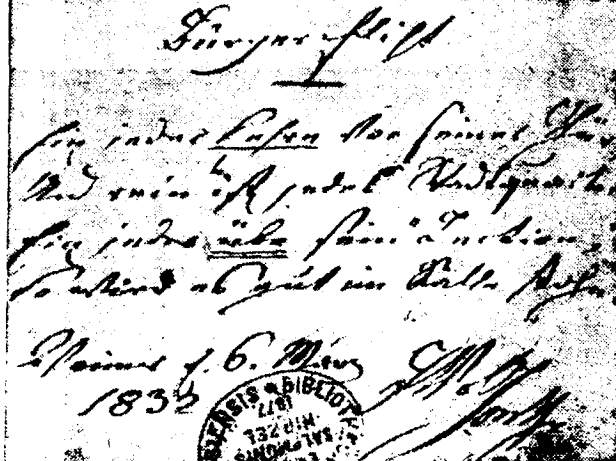 Bürgerpflicht
Ein jeder kehre vor seiner Thü
Und rein ist jedes Stadtquartie
Ein jeder übe sein' Lection,
So wird es gut im Rathe stohn
Weimar d. 6. März
1832
BIBLIOTH
1877
HIRZEL